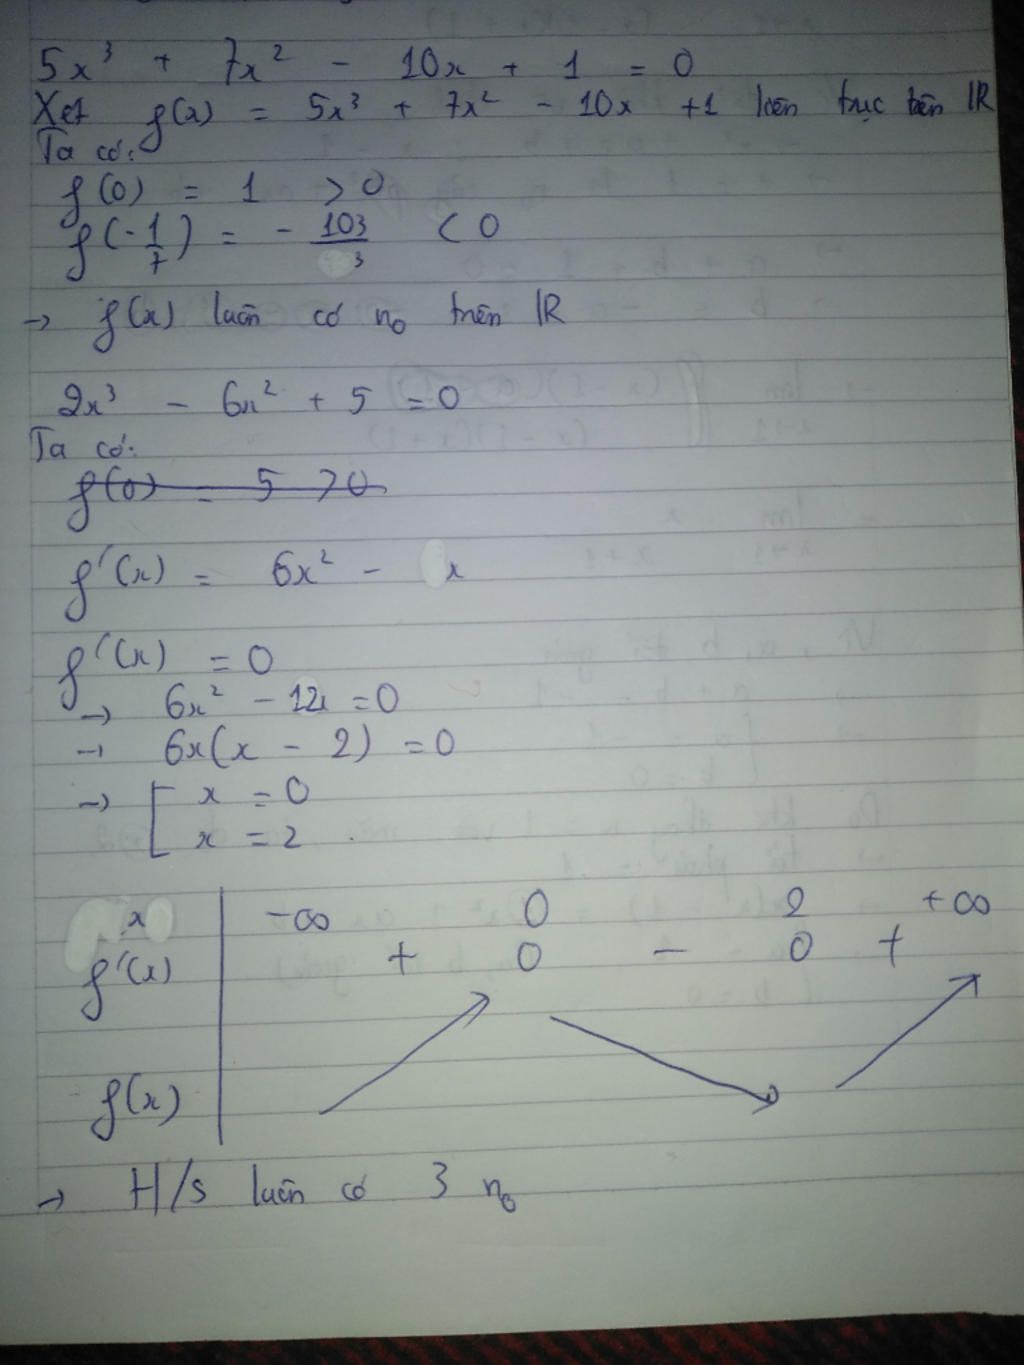 5x³ + 7x² - 10x + 1 = 0
Xét f(x) = 5x³ + 7x² - 10x + 1 liên trục trên ℝ
Ta có:
f(0) = 1 > 0
f(-1/7) = - 103/3 < 0
→ f(x) luôn có n₀ trên ℝ
2x³ - 6x² + 5 = 0
Ta có:
f(0) = 5 > 0
f'(x) = 6x² - x
f'(x) = 0
→ 6x² - 12x = 0
→ 6x(x - 2) = 0
→ [ x = 0
x = 2
x -∞ 0 2 +∞
f'(x) + 0 - 0 +
f(x)
→ H/s luôn có 3 n₀